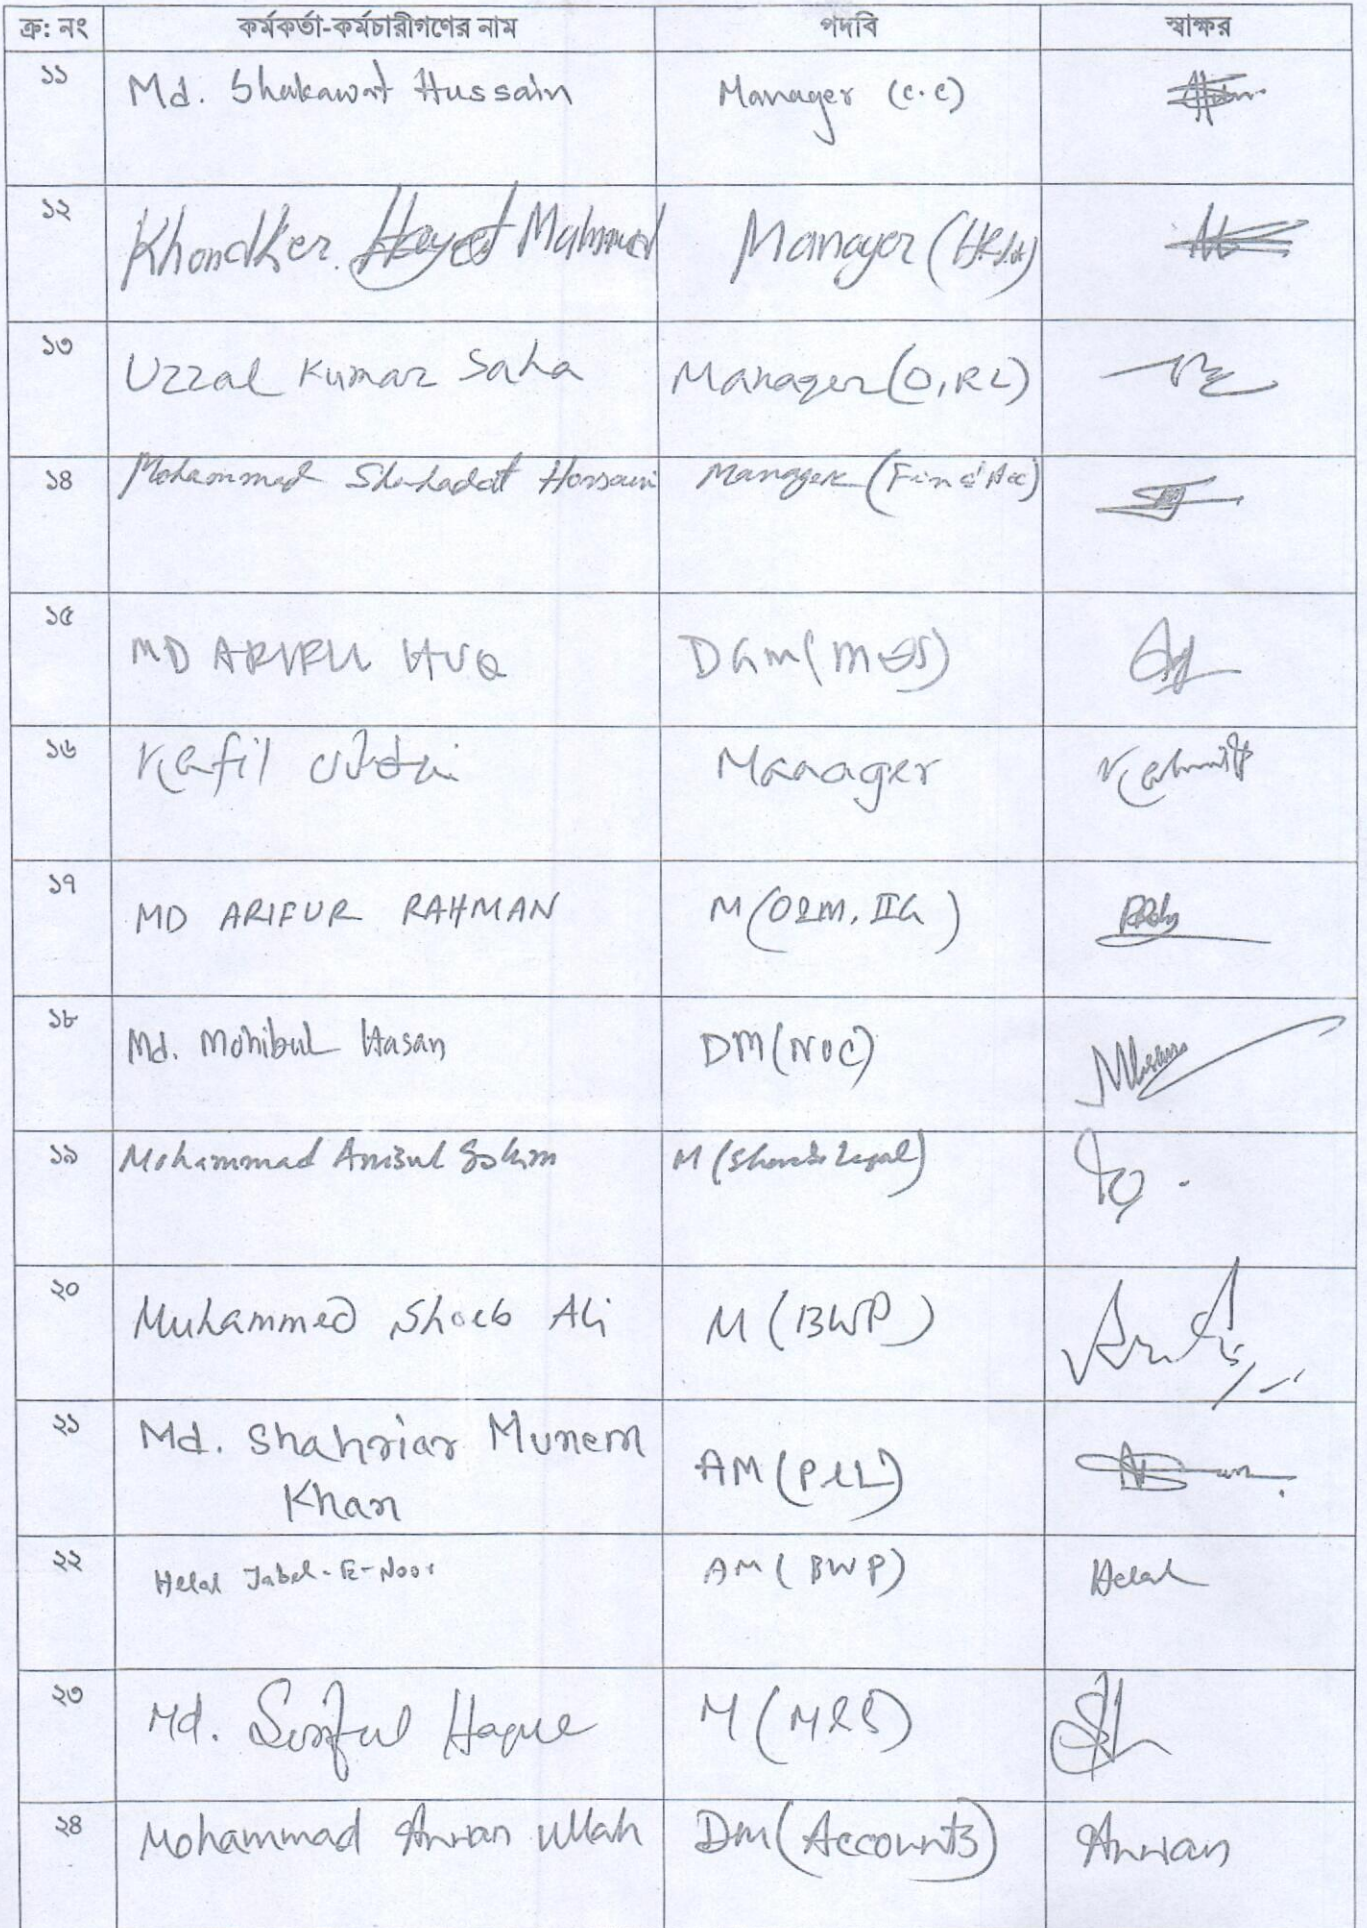 ক্র: নং কর্মকর্তা-কর্মচারীগণের নাম পদবি স্বাক্ষর
১১ Md. Shakawat Hussain Manager (C.C)
১২ Khondker Hayet Mahmud Manager
১৩ Uzzal Kumar Saha Manager (O, RL)
১৪ Mohammad Shahadat Hossain Manager (Fin & Acc)
১৫ MD ARIFUL HUQ DGM (M&S)
১৬ Kafil Uddin Manager
১৭ MD ARIFUR RAHMAN M (O&M, IIG)
১৮ Md. Mohibul Hasan DM (NOC)
১৯ Mohammad Anisul M (Share & Legal)
২০ Muhammed Shoeb Ali M (BWP)
২১ Md. Shahriar Munem
Khan AM
২২ Helal Jabel-E-Noor AM (BWP) Helal
২৩ Md. Haque M (M&S)
২৪ Mohammad Ullah DM (Accounts)